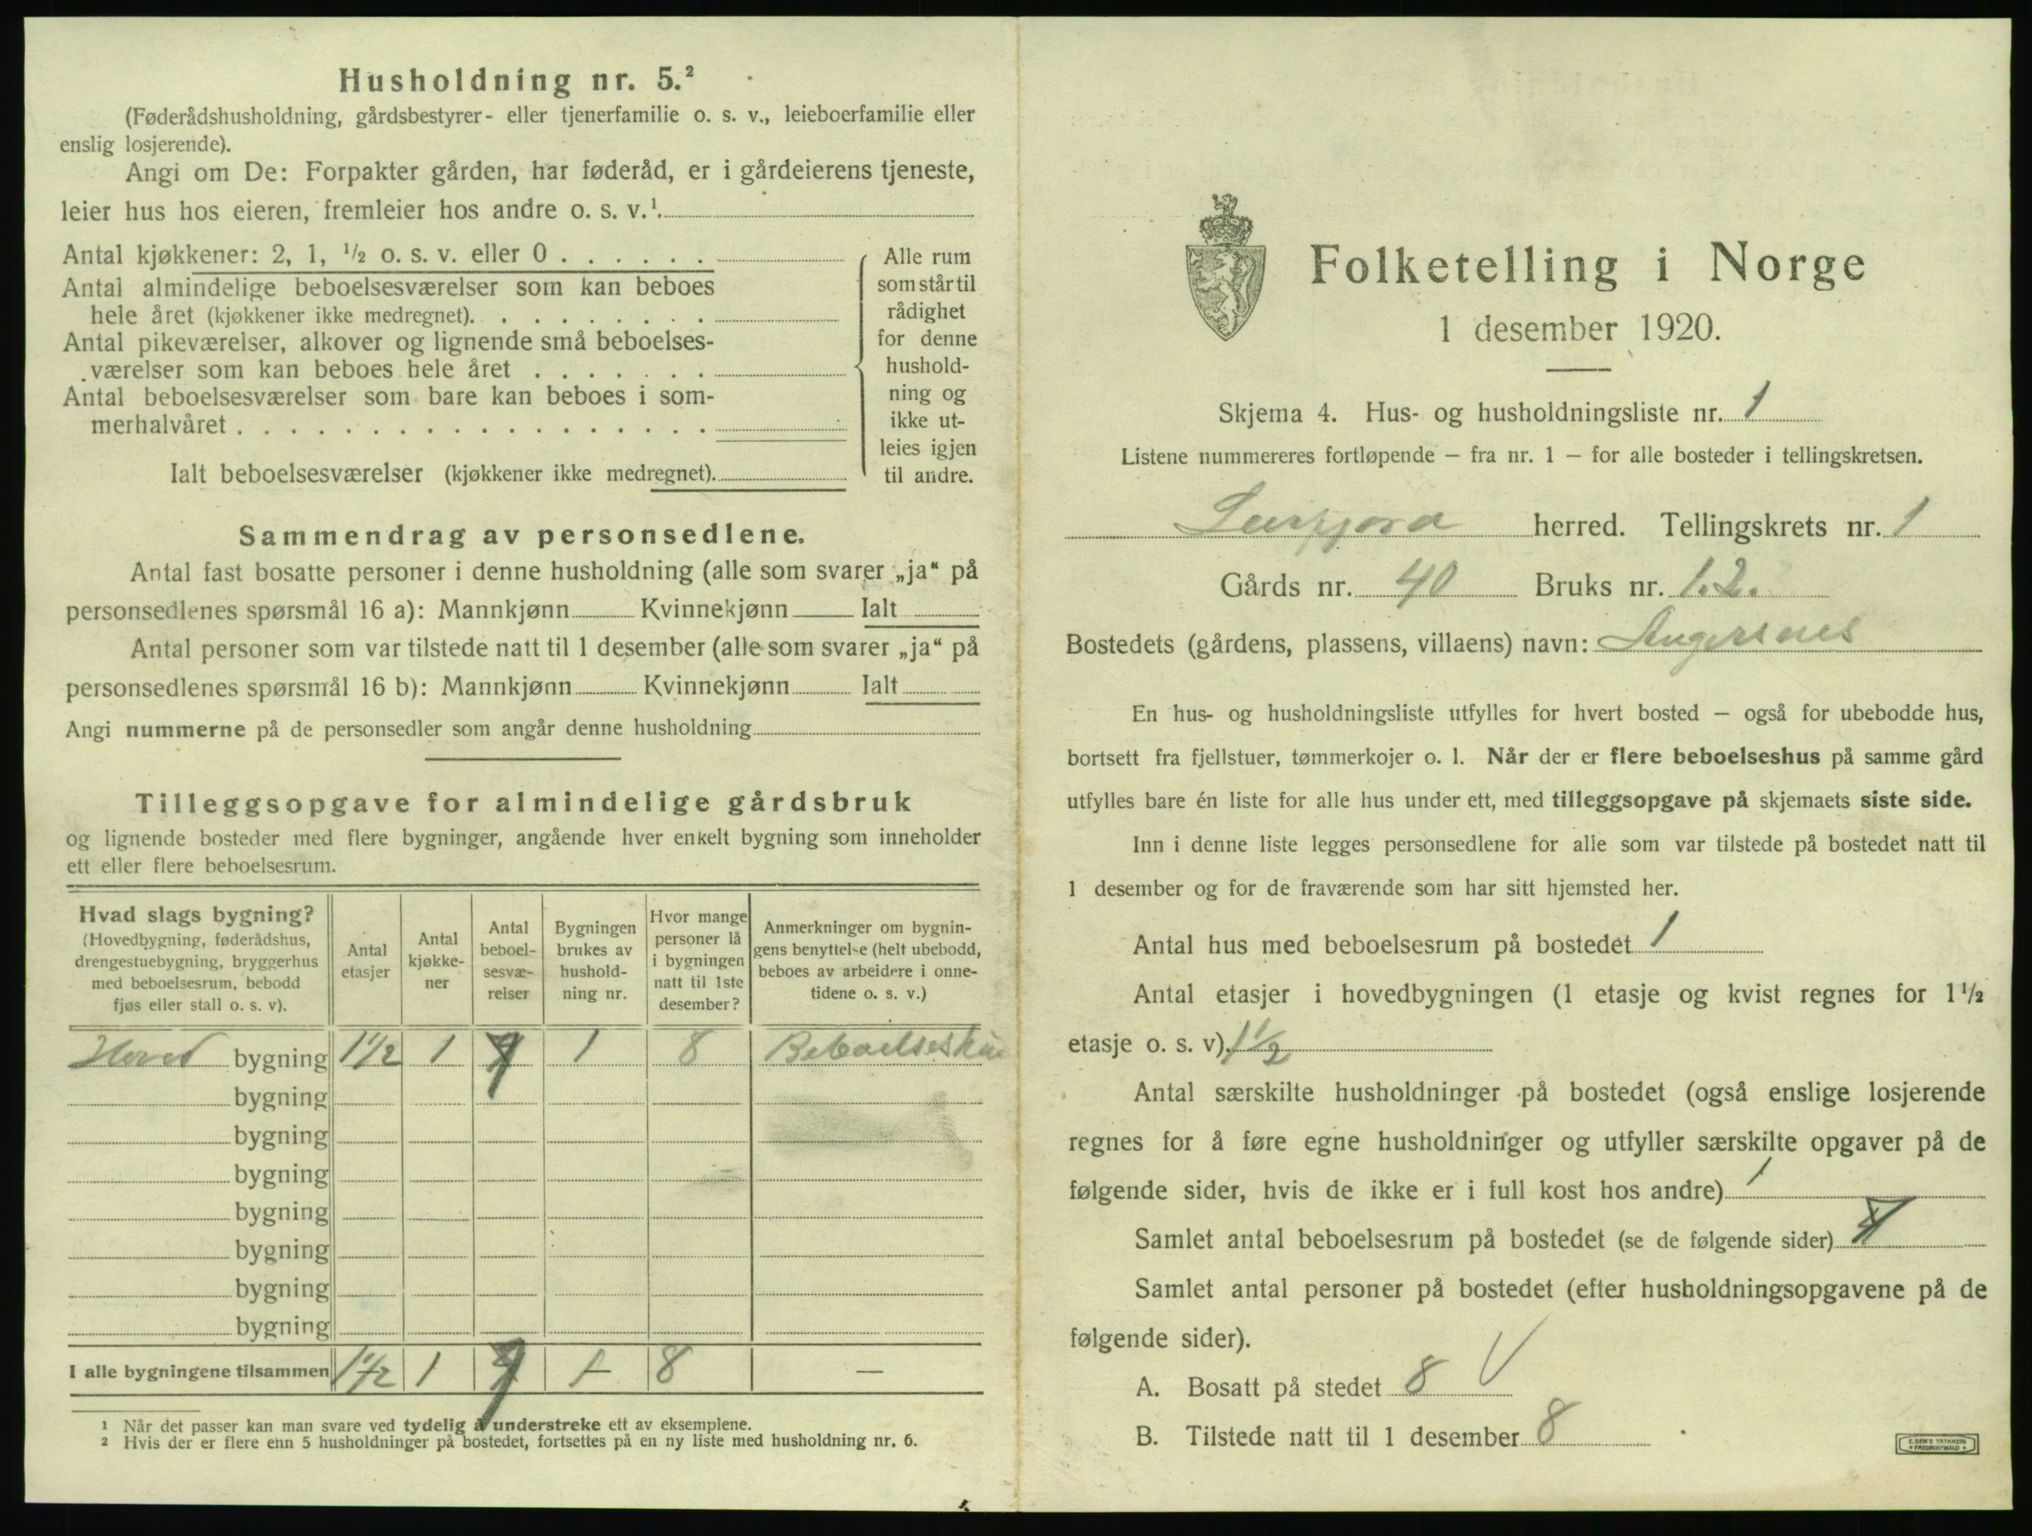 Husholdning nr. 5.²
(Føderådshusholdning, gårdsbestyrer- eller tjenerfamilie o. s. v., leieboerfamilie eller
enslig losjerende).
Angi om De: Forpakter gården, har føderåd, er i gårdeierens tjeneste,
leier hus hos eieren, fremleier hos andre o. s. v.¹
Antal kjøkkener: 2, 1, ½ o. s. v. eller 0
Antal almindelige beboelsesværelser som kan beboes
hele året (kjøkkener ikke medregnet).
Antal pikeværelser, alkover og lignende små beboelses-
værelser som kan beboes hele året
Antal beboelsesværelser som bare kan beboes i som-
merhalvåret
Ialt beboelsesværelser (kjøkkener ikke medregnet).
Alle rum
som står til
rådighet
for denne
hushold-
ning og
ikke ut-
leies igjen
til andre.
Sammendrag av personsedlene.
Antal fast bosatte personer i denne husholdning (alle som svarer „ja“ på
personsedlenes spørsmål 16 a): Mannkjønn Kvinnekjønn Ialt
Antal personer som var tilstede natt til 1 desember (alle som svarer „ja“ på
personsedlenes spørsmål 16 b): Mannkjønn Kvinnekjønn Ialt
Angi nummerne på de personsedler som angår denne husholdning
Tilleggsopgave for almindelige gårdsbruk
og lignende bosteder med flere bygninger, angående hver enkelt bygning som inneholder
ett eller flere beboelsesrum.
Hvad slags bygning?
(Hovedbygning, føderådshus,
drengestuebygning, bryggerhus
med beboelsesrum, bebodd
fjøs eller stall o. s. v).
Antal
etasjer
Antal
kjøkke-
ner
Antal
beboel-
sesvæ-
relser
Bygningen
brukes av
hushold-
ning nr.
Hvor mange
personer lå
i bygningen
natt til 1ste
desember?
Anmerkninger om bygnin-
gens benyttelse (helt ubebodd,
beboes av arbeidere i onne-
tidene o. s. v.)
Hoved bygning 1½ 1 1 8
bygning
bygning
bygning
bygning
bygning
bygning
bygning
I alle bygningene tilsammen 1½ 1 1 8 —
¹ Når det passer kan man svare ved tydelig å understreke ett av eksemplene.
² Hvis der er flere enn 5 husholdninger på bostedet, fortsettes på en ny liste med husholdning nr. 6.
Folketelling i Norge
1 desember 1920.
Skjema 4. Hus- og husholdningsliste nr. 1
Listene nummereres fortløpende – fra nr. 1 – for alle bosteder i tellingskretsen.
Leirfjord herred. Tellingskrets nr. 1
Gårds nr. 40 Bruks nr. 1.2.
Bostedets (gårdens, plassens, villaens) navn: Angersnes
En hus- og husholdningsliste utfylles for hvert bosted – også for ubebodde hus,
bortsett fra fjellstuer, tømmerkojer o. l. Når der er flere beboelseshus på samme gård
utfylles bare én liste for alle hus under ett, med tilleggsopgave på skjemaets siste side.
Inn i denne liste legges personsedlene for alle som var tilstede på bostedet natt til
1 desember og for de fraværende som har sitt hjemsted her.
Antal hus med beboelsesrum på bostedet 1
Antal etasjer i hovedbygningen (1 etasje og kvist regnes for 1½
etasje o. s. v). 1½
Antal særskilte husholdninger på bostedet (også enslige losjerende
regnes for å føre egne husholdninger og utfyller særskilte opgaver på de
følgende sider, hvis de ikke er i full kost hos andre) 1
Samlet antal beboelsesrum på bostedet (se de følgende sider)
Samlet antal personer på bostedet (efter husholdningsopgavene på de
følgende sider).
A. Bosatt på stedet 8
B. Tilstede natt til 1 desember 8